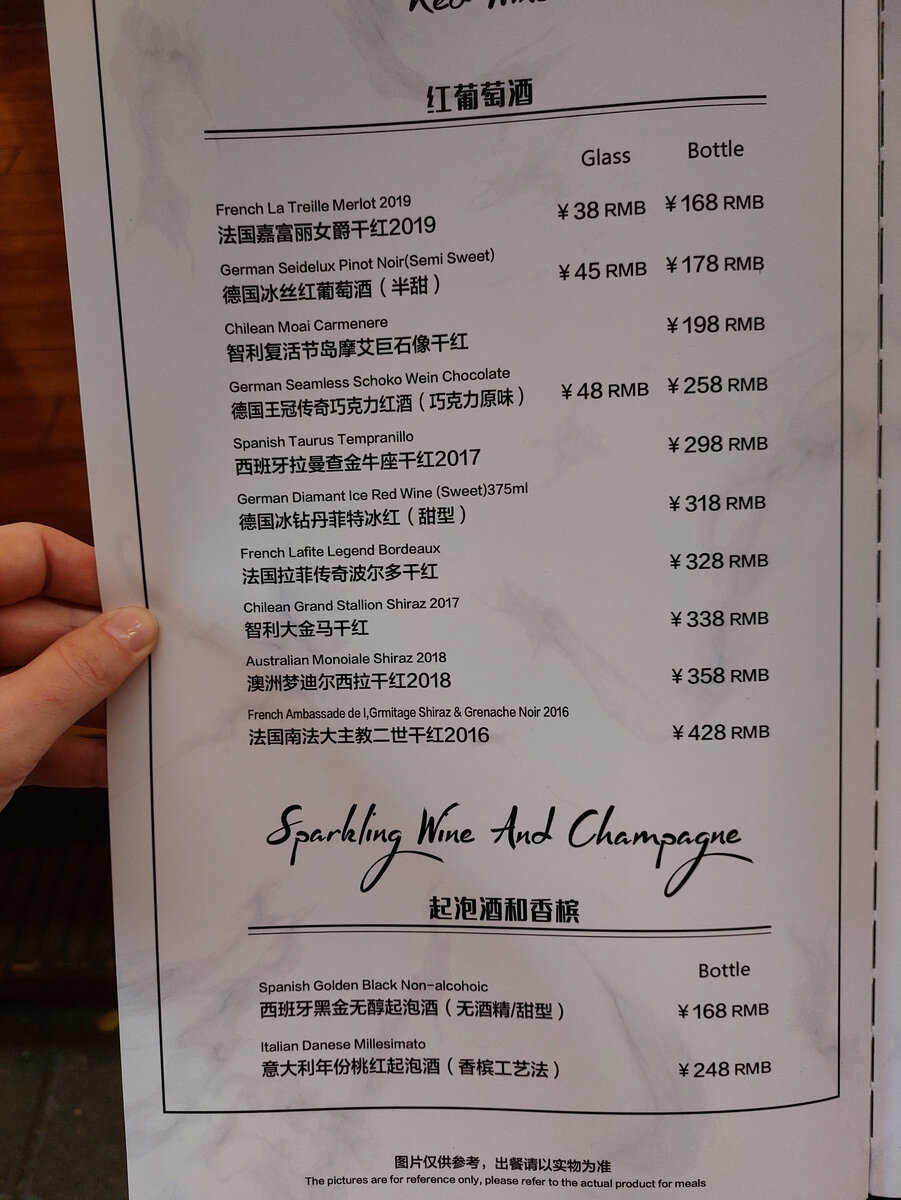 Red Wine
红葡萄酒
Glass Bottle
French La Treille Merlot 2019
法国嘉富丽女爵干红2019 ¥38 RMB ¥168 RMB
German Seidelux Pinot Noir(Semi Sweet)
德国冰丝红葡萄酒（半甜） ¥45 RMB ¥178 RMB
Chilean Moai Carmenere
智利复活节岛摩艾巨石像干红 ¥198 RMB
German Seamless Schoko Wein Chocolate
德国王冠传奇巧克力红酒（巧克力原味） ¥48 RMB ¥258 RMB
Spanish Taurus Tempranillo
西班牙拉曼查金牛座干红2017 ¥298 RMB
German Diamant Ice Red Wine (Sweet)375ml
德国冰钻丹菲特冰红（甜型） ¥318 RMB
French Lafite Legend Bordeaux
法国拉菲传奇波尔多干红 ¥328 RMB
Chilean Grand Stallion Shiraz 2017
智利大金马干红 ¥338 RMB
Australian Monoiale Shiraz 2018
澳洲梦迪尔西拉干红2018 ¥358 RMB
French Ambassade de l,Grmitage Shiraz & Grenache Noir 2016
法国南法大主教二世干红2016 ¥428 RMB
Sparkling Wine And Champagne
起泡酒和香槟
Bottle
Spanish Golden Black Non-alcohoic
西班牙黑金无醇起泡酒（无酒精/甜型） ¥168 RMB
Italian Danese Millesimato
意大利年份桃红起泡酒（香槟工艺法） ¥248 RMB
图片仅供参考，出餐请以实物为准
The pictures are for reference only, please refer to the actual product for meals